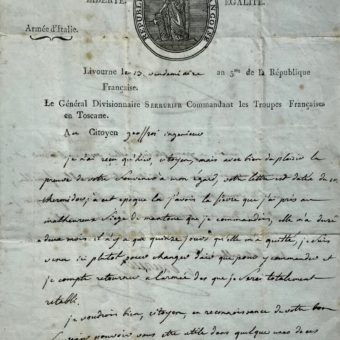 LIBERTÉ. ÉGALITÉ.
RÉPUBLIQUE
Armée d'Italie.
Livourne le 13 vendémiaire au 5me de la République
Française.
Le Général Divisionnaire SERRURIER Commandant les Troupes Françaises
en Toscane.
Au Citoyen ingenieur
je n'ai reçu qu'hier, citoyen, mais avec bien du plaisir la
preuve de votre souvenir a mon egard, votre lettre est datée de
thermidor, a cet epoque la j'avois la fievre que j'ai pris au
malheureux siege de mantoue que je commandois, elle m'a duré
deux mois il n'y a que quinze jours qu'elle m'a quitté, je suis
venu ici plutot pour changer d'air que pour y commander et
je compte retourner a l'armée des que je serai totalement
retabli.
je voudrois bien, citoyen, en reconnaissance de votre bon
pouvoir vous etre utile dans quelque